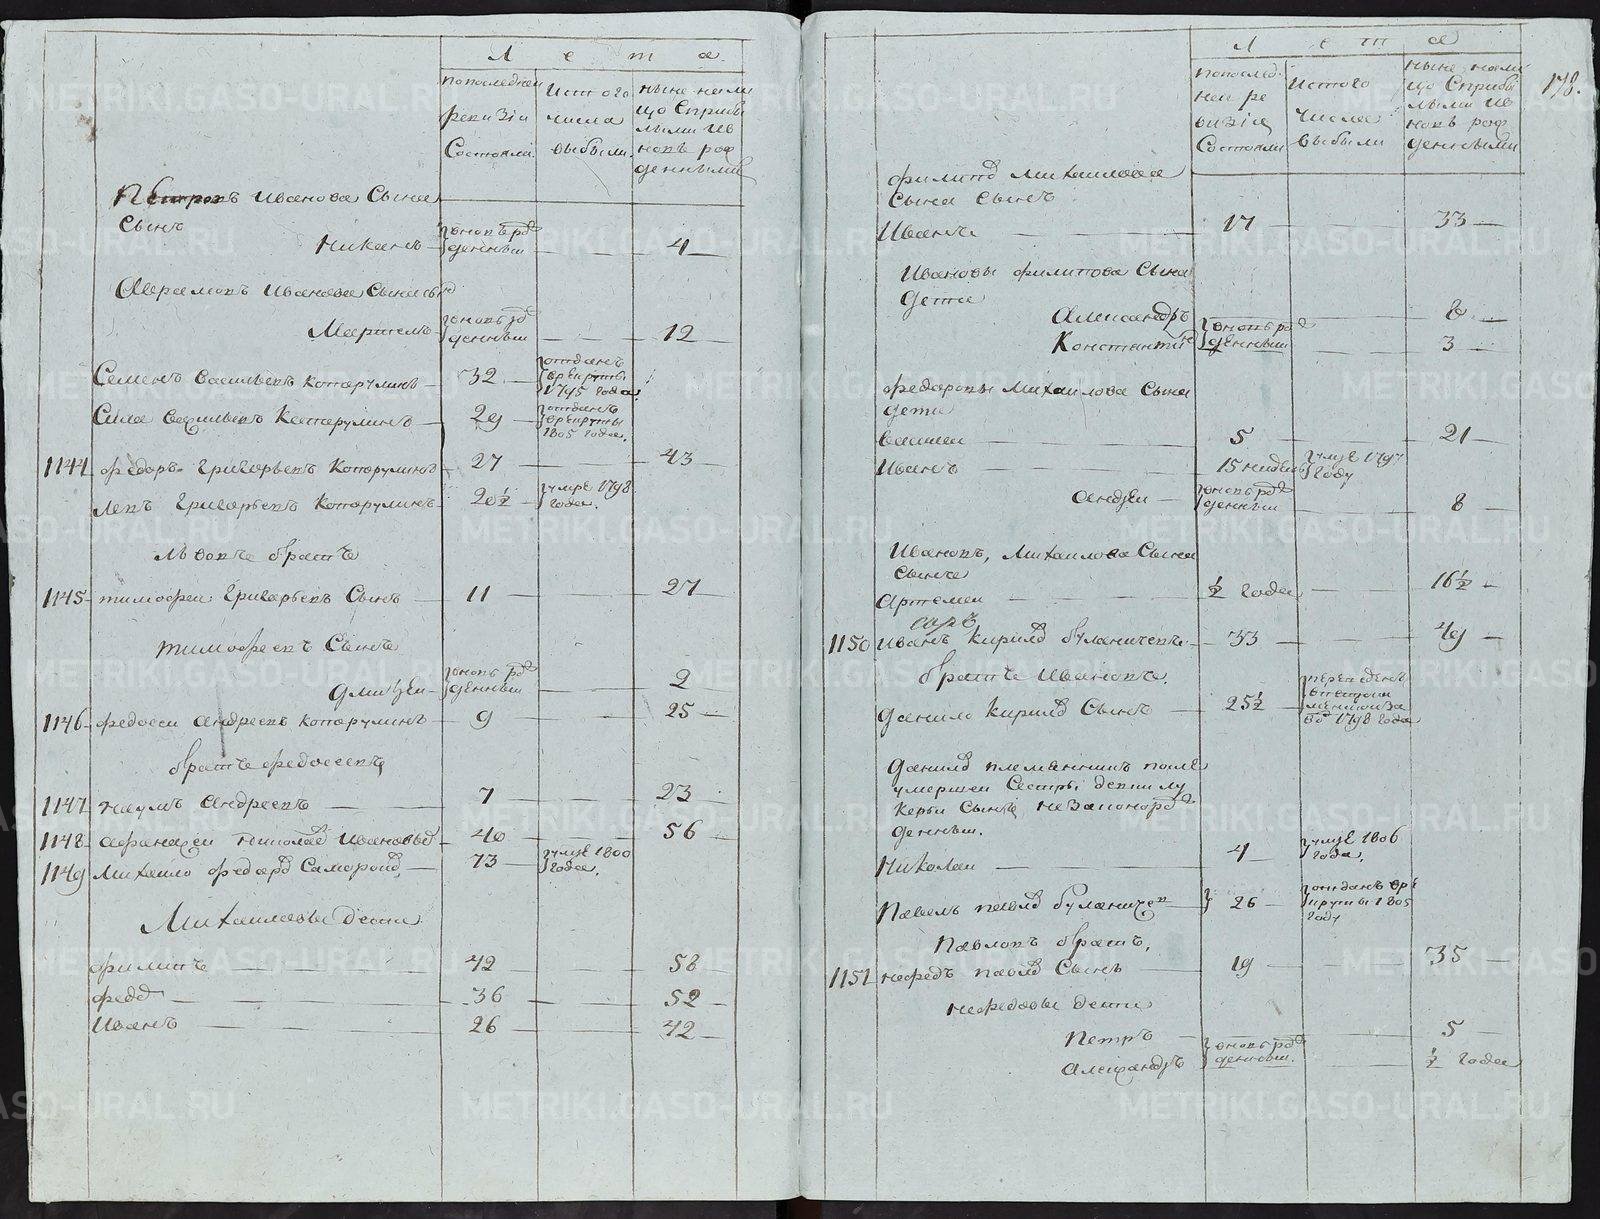 Лета
По последней ревизіи Состояли
Истого числа выбыли
ныне налицо Сприбылыми иновь рожденными
Петровъ Иванова Сына
Сынъ
Никанъ вновь рожденныи — 4
Аврамовъ Иванова Сына сынъ
Мартемъ вновь рожденныи — 12
Семенъ Васильевъ Котарулинъ — 32 — отданъ врекруты 1795 года
Сила Васильевъ Котарулинъ — 29 отданъ врекруты 1805 года.
1144 федоръ Григорьевъ Котарулинъ 27 — 43
левъ Григорьевъ Котарулинъ 20½ умре 1798 года.
львовъ братъ
1145 тимофеи Григорьевъ Сынъ — 11 — 27
тимофеевъ Сынъ
дмитреи вновь рожденныи — 2
1146 федосеи андреевъ котарулинъ — 9 — 25
братъ федосеевъ
1147 наумъ андреевъ — 7 — 23
1148 афанасеи николаевъ Ивановъ — 40 — 56
1149 Михаило федоровъ — 73 умре 1800 года.
Михаиловы дети
филипъ — 42 — 58
федоръ — 36 — 52
Иванъ — 26 — 42
Лета
178.
По последней ревизія Состояли
Истого числа выбыли
ныне налицо Сприбылыми иновь рожденными
филипа Михаилова
Сына Сынъ
Иванъ — 17 — 33
Ивановы филипова Сына
дети
Александръ — 8
Константинъ вновь рожденныи — 3
федоровы Михаилова Сына
дети
василеи — 5 — 21
Иванъ — 15 недель умре 1797 году
андреи вновь рожденныи — 8
Ивановъ, Михаилова Сына
Сынъ
Артемеи — ½ года — 16½
1150 Иванъ Кириловъ буланичевъ 33 — 49
братъ Ивановъ.
данило Кириловъ Сынъ — 25½ переведенъ 1798 года
данилы племянникъ после
умершеи Сестры
Сынъ незаконорожденныи.
Николаи — 4 умре 1806 года.
Павелъ павловъ буланичевъ 26 — отданъ врекруты 1805 году
Павловъ братъ,
1151 нефедъ павловъ Сынъ — 19 — 35
нефедовы дети
Петръ — 5
Александръ вновь рожденныи. ½ года
METRIKI.GASO-URAL.RU